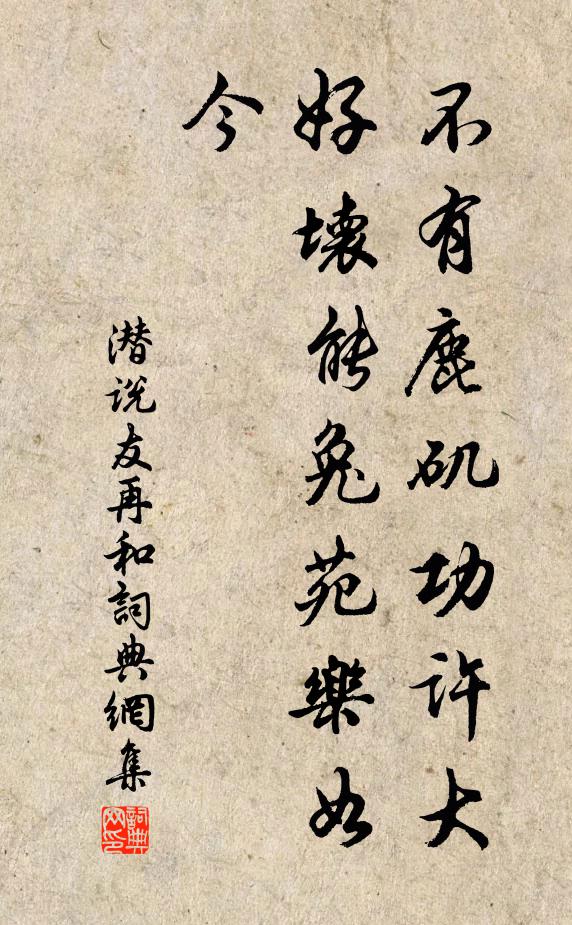 不有鹿矶功许大
好壞能兔苑樂如
今
潜说友再和詞典網集
詞典网印